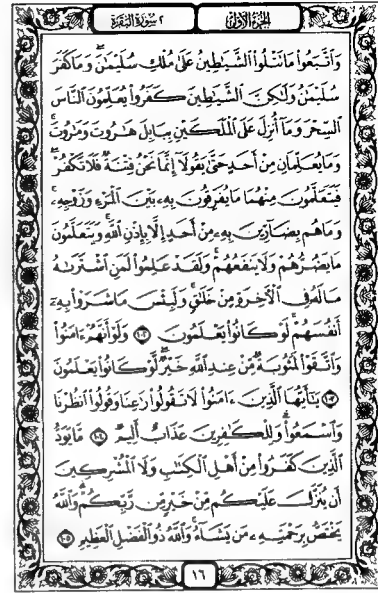 الجزء الأول
٢ سورة البقرة
وَٱتَّبَعُوا۟ مَا تَتْلُوا۟ ٱلشَّيَـٰطِينُ عَلَىٰ مُلْكِ سُلَيْمَـٰنَ ۖ وَمَا كَفَرَ
سُلَيْمَـٰنُ وَلَـٰكِنَّ ٱلشَّيَـٰطِينَ كَفَرُوا۟ يُعَلِّمُونَ ٱلنَّاسَ
ٱلسِّحْرَ وَمَآ أُنزِلَ عَلَى ٱلْمَلَكَيْنِ بِبَابِلَ هَـٰرُوتَ وَمَـٰرُوتَ ۚ
وَمَا يُعَلِّمَانِ مِنْ أَحَدٍ حَتَّىٰ يَقُولَآ إِنَّمَا نَحْنُ فِتْنَةٌ فَلَا تَكْفُرْ ۖ
فَيَتَعَلَّمُونَ مِنْهُمَا مَا يُفَرِّقُونَ بِهِۦ بَيْنَ ٱلْمَرْءِ وَزَوْجِهِۦ ۚ
وَمَا هُم بِضَآرِّينَ بِهِۦ مِنْ أَحَدٍ إِلَّا بِإِذْنِ ٱللَّهِ ۚ وَيَتَعَلَّمُونَ
مَا يَضُرُّهُمْ وَلَا يَنفَعُهُمْ ۚ وَلَقَدْ عَلِمُوا۟ لَمَنِ ٱشْتَرَىٰهُ
مَا لَهُۥ فِى ٱلْـَٔاخِرَةِ مِنْ خَلَـٰقٍ ۚ وَلَبِئْسَ مَا شَرَوْا۟ بِهِۦٓ
أَنفُسَهُمْ ۚ لَوْ كَانُوا۟ يَعْلَمُونَ ١٠٢ وَلَوْ أَنَّهُمْ ءَامَنُوا۟
وَٱتَّقَوْا۟ لَمَثُوبَةٌ مِّنْ عِندِ ٱللَّهِ خَيْرٌ ۖ لَّوْ كَانُوا۟ يَعْلَمُونَ
١٠٣ يَـٰٓأَيُّهَا ٱلَّذِينَ ءَامَنُوا۟ لَا تَقُولُوا۟ رَٰعِنَا وَقُولُوا۟ ٱنظُرْنَا
وَٱسْمَعُوا۟ ۗ وَلِلْكَـٰفِرِينَ عَذَابٌ أَلِيمٌ ١٠٤ مَّا يَوَدُّ
ٱلَّذِينَ كَفَرُوا۟ مِنْ أَهْلِ ٱلْكِتَـٰبِ وَلَا ٱلْمُشْرِكِينَ
أَن يُنَزَّلَ عَلَيْكُم مِّنْ خَيْرٍ مِّن رَّبِّكُمْ ۗ وَٱللَّهُ
يَخْتَصُّ بِرَحْمَتِهِۦ مَن يَشَآءُ ۚ وَٱللَّهُ ذُو ٱلْفَضْلِ ٱلْعَظِيمِ ١٠٥
١٦